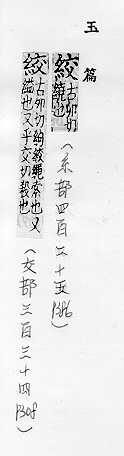 玉篇
絞 古卯切 繩也（糸部四百二十五 P386）
絞 古卯切約絞繩索也又縊也又乎交切㪣也（交部三百三十四 P308）